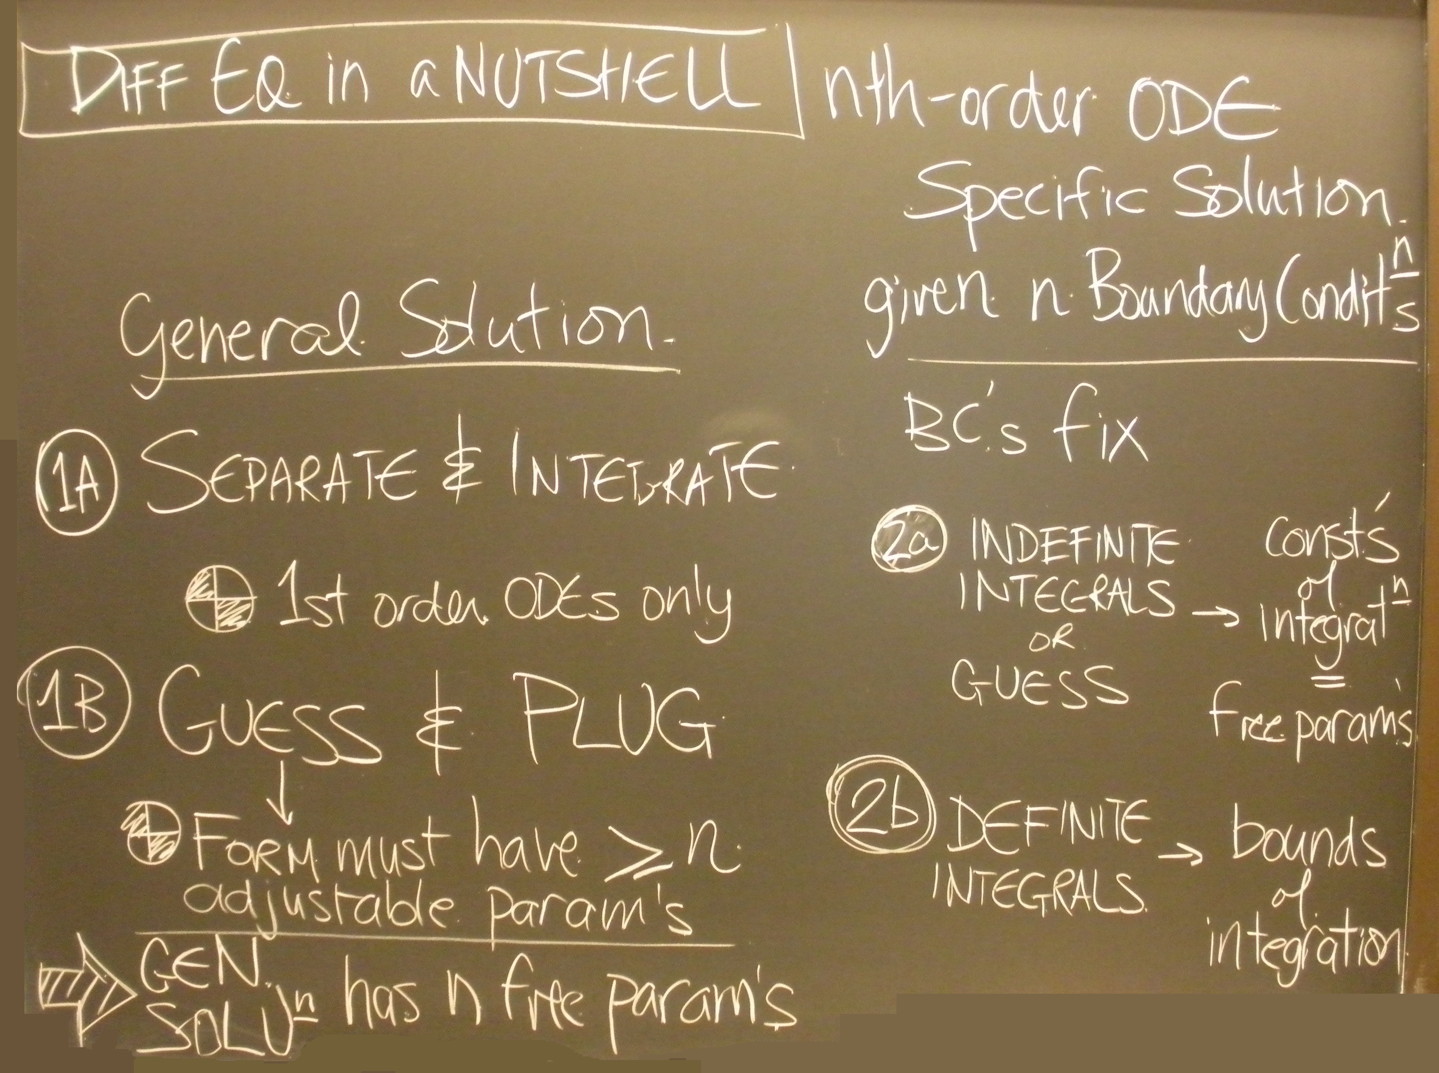 DIFF EQ in a NUTSHELL
nth-order ODE
Specific Solution.
given n Boundary Condit'ns
General Solution.
BC's fix
1A SEPARATE & INTEGRATE
1st order ODEs only
1B GUESS & PLUG
FORM must have ≥ n
adjustable param's
GEN. SOLU'n has n free param's
2a INDEFINITE
INTEGRALS
OR
GUESS
→
const's
of
integrat'n
=
free param's
2b DEFINITE
INTEGRALS.
→
bounds
of
integration